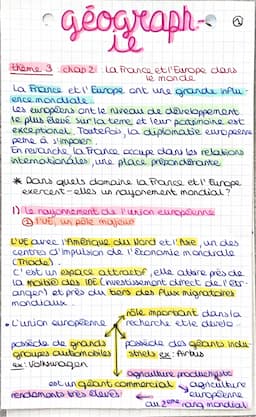 géograph-
ie
thème 3 chap 2 : La France et l'Europe dans
le monde
La France et l'Europe ont une grande influ-
ence mondiale.
Les européens ont le niveau de développement
le plus élevé sur la terre et leur patrimoine est
exceptionnel. Toutefois, la diplomatie européenne
peine à s'imposer.
En revanche, la France occupe dans les relations
internationales, une place prépondérante
* Dans quels domaines la France et l'Europe
exercent-elles un rayonnement mondial ?
1) le rayonnement de l'union européenne
① l'UE, un pôle majeur
L'UE avec l'Amérique du Nord et l'Asie, un des
centres d'impulsion de l'économie mondiale
(Triade).
C'est un espace attractif, elle attire près de
la moitié des IDE (investissement direct de l'étr-
anger) et près du tiers des flux migratoires
mondiaux.
• L'union européenne
rôle important dans la
recherche et le dévelo
possède de grands
groupes automobiles
ex : Volkswagen
possède des géants indu-
striels ex : Airbus
agriculture productiviste
est un géant commercial
rendements très élevés
agriculture
européenne
au 2ème rang mondial